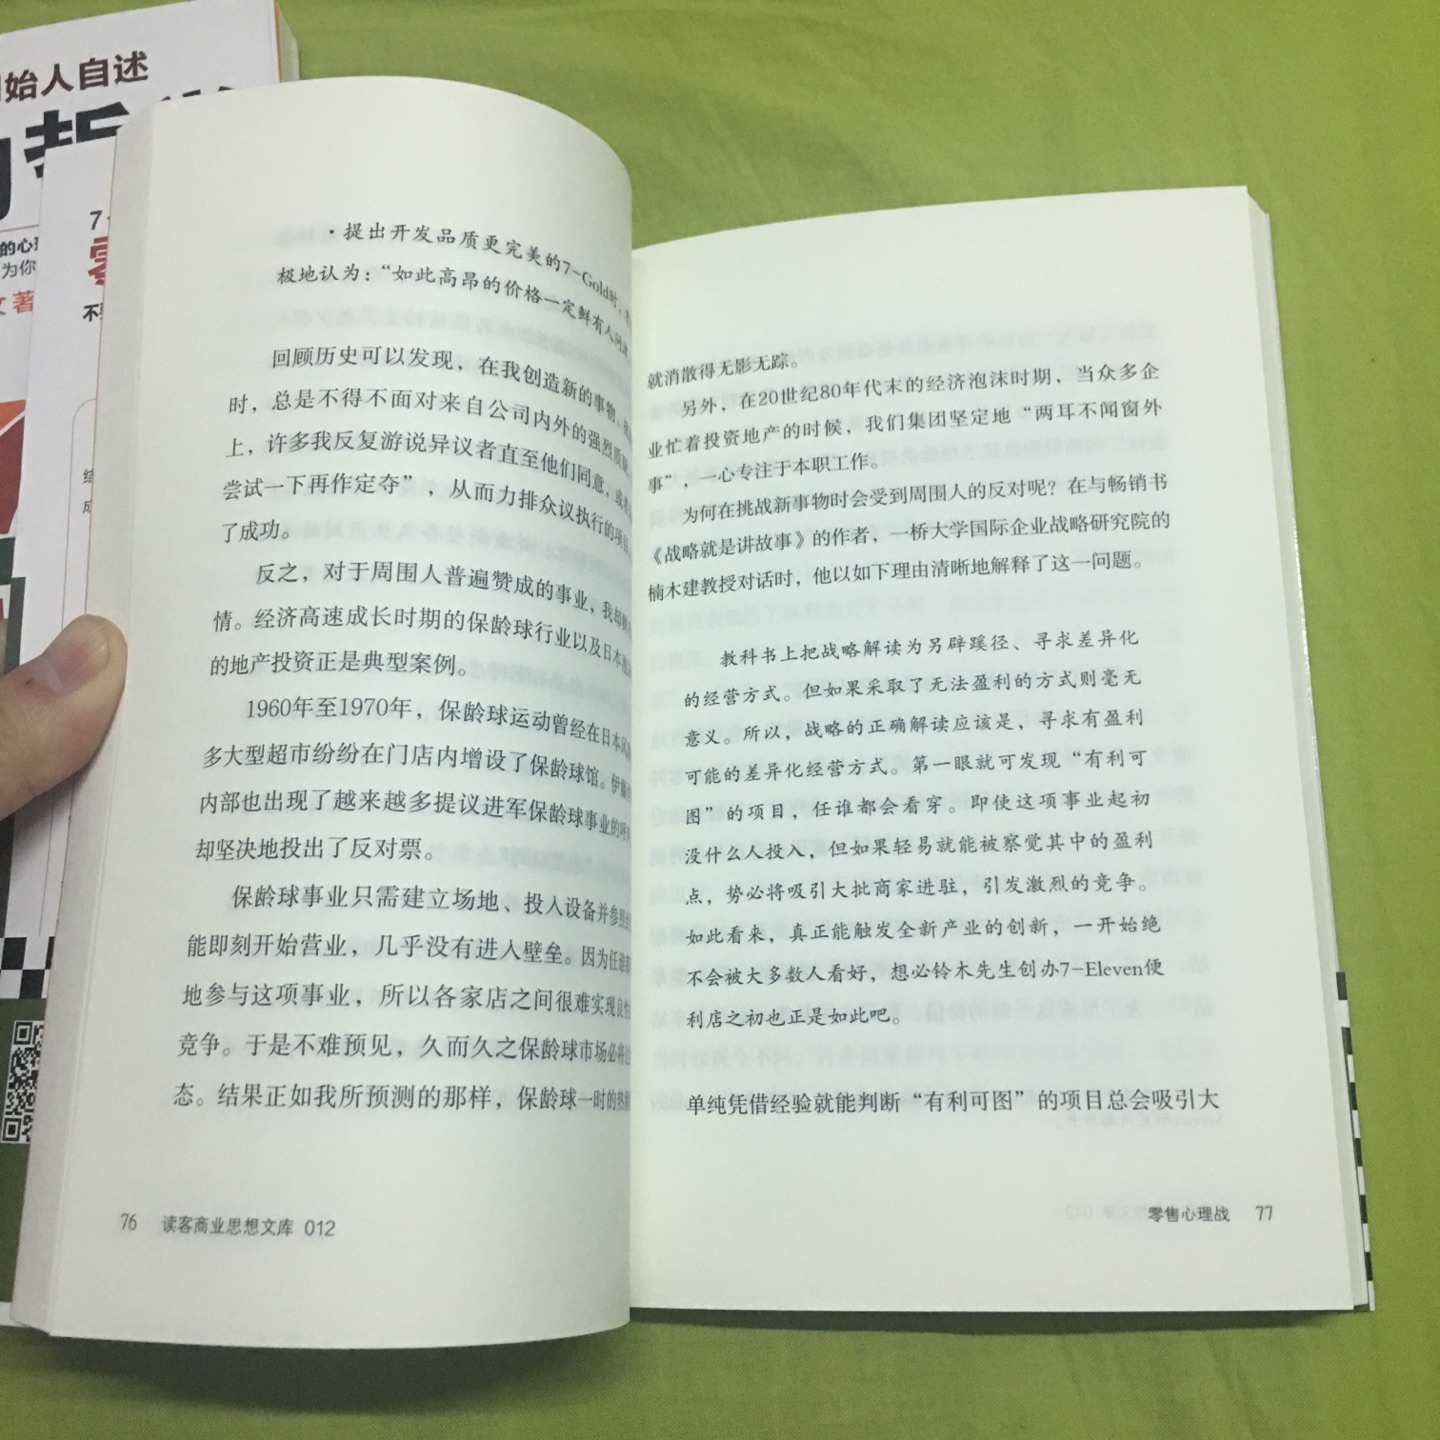 始人自述
的心理
为你
著
7
不
·提出开发品质更完美的7-Gold时，
极地认为：“如此高昂的价格一定鲜有人问
回顾历史可以发现，在我创造新的事物、
时，总是不得不面对来自公司内外的强烈质
上，许多我反复游说异议者直至他们同意，或
尝试一下再作定夺”，从而力排众议执行的项
了成功。
反之，对于周围人普遍赞成的事业，我却
情。经济高速成长时期的保龄球行业以及日本
的地产投资正是典型案例。
1960年至1970年，保龄球运动曾经在日本风
多大型超市纷纷在门店内增设了保龄球馆。伊藤
内部也出现了越来越多提议进军保龄球事业的呼
却坚决地投出了反对票。
保龄球事业只需建立场地、投入设备并参照
能即刻开始营业，几乎没有进入壁垒。因为任谁
地参与这项事业，所以各家店之间很难实现良性
竞争。于是不难预见，久而久之保龄球市场必将
态。结果正如我所预测的那样，保龄球一时的热
76 读客商业思想文库 012
就消散得无影无踪。
另外，在20世纪80年代末的经济泡沫时期，当众多企
业忙着投资地产的时候，我们集团坚定地“两耳不闻窗外
事”，一心专注于本职工作。
为何在挑战新事物时会受到周围人的反对呢？在与畅销书
《战略就是讲故事》的作者，一桥大学国际企业战略研究院的
楠木建教授对话时，他以如下理由清晰地解释了这一问题。
教科书上把战略解读为另辟蹊径、寻求差异化
的经营方式。但如果采取了无法盈利的方式则毫无
意义。所以，战略的正确解读应该是，寻求有盈利
可能的差异化经营方式。第一眼就可发现“有利可
图”的项目，任谁都会看穿。即使这项事业起初
没什么人投入，但如果轻易就能被察觉其中的盈利
点，势必将吸引大批商家进驻，引发激烈的竞争。
如此看来，真正能触发全新产业的创新，一开始绝
不会被大多数人看好，想必铃木先生创办7-Eleven便
利店之初也正是如此吧。
单纯凭借经验就能判断“有利可图”的项目总会吸引大
零售心理战 77